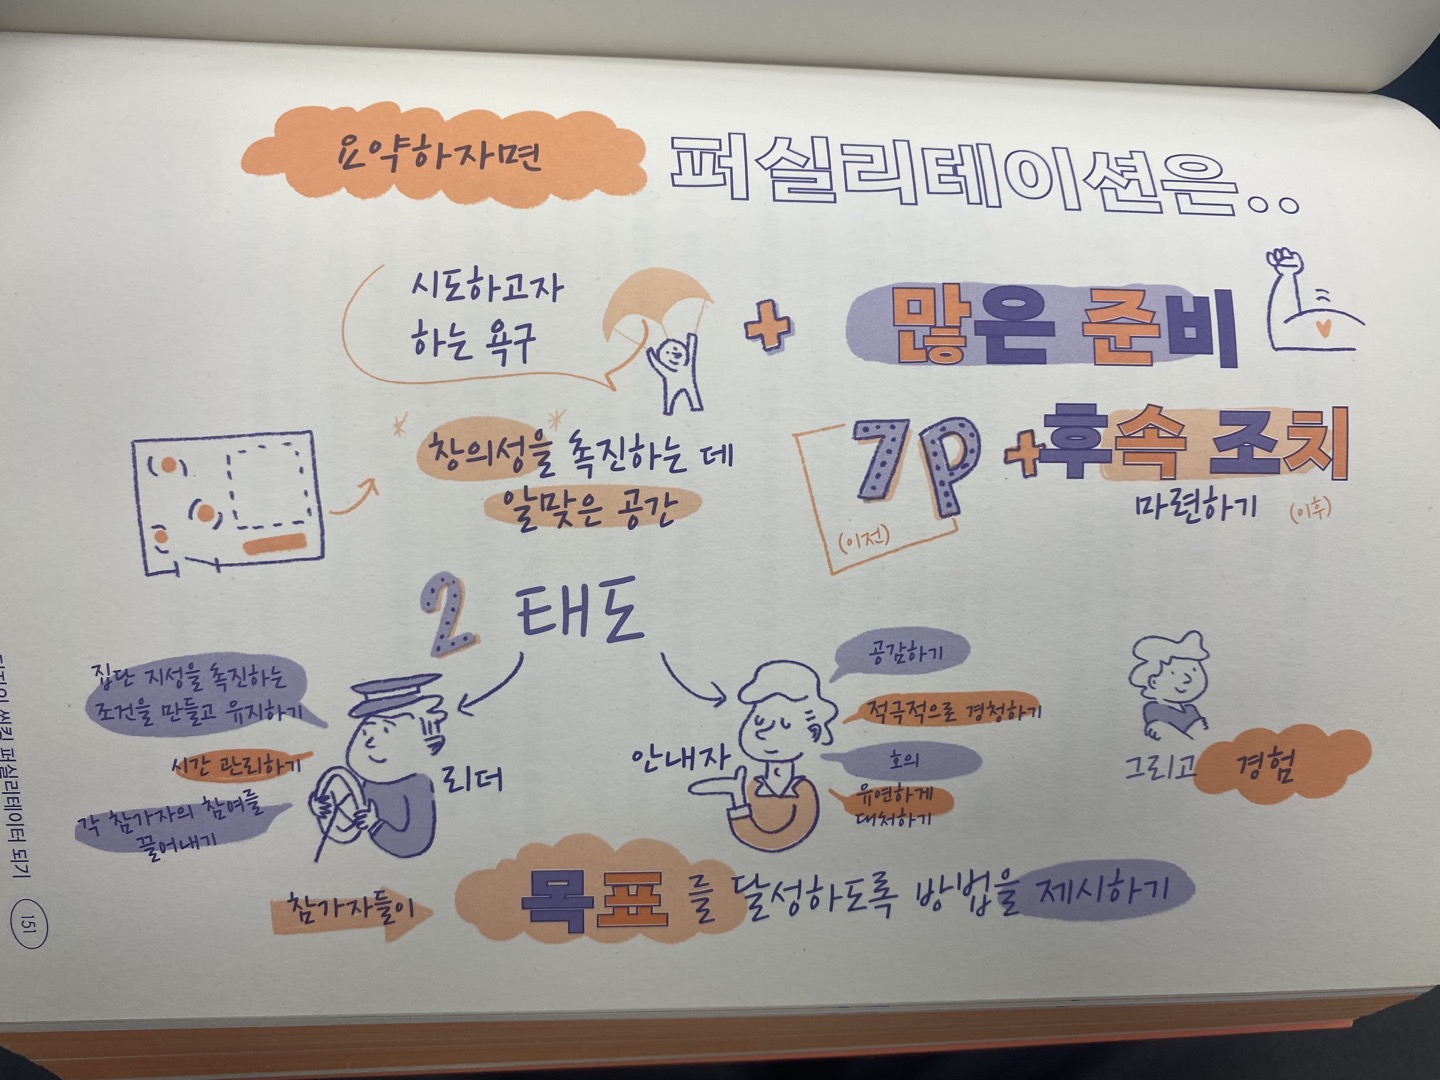 요약하자면 퍼실리테이션은..
시도하고자
하는 욕구
+ 많은 준비
창의성을 촉진하는 데
알맞은 공간
7P + 후속 조치
(이전)
마련하기 (이후)
2 태도
집단 지성을 촉진하는
조건을 만들고 유지하기
시간 관리하기
각 참가자의 참여를
끌어내기
리더
안내자
공감하기
적극적으로 경청하기
호의
유연하게
대처하기
그리고 경험
참가자들이 목표를 달성하도록 방법을 제시하기
퍼실리테이터 되기
151